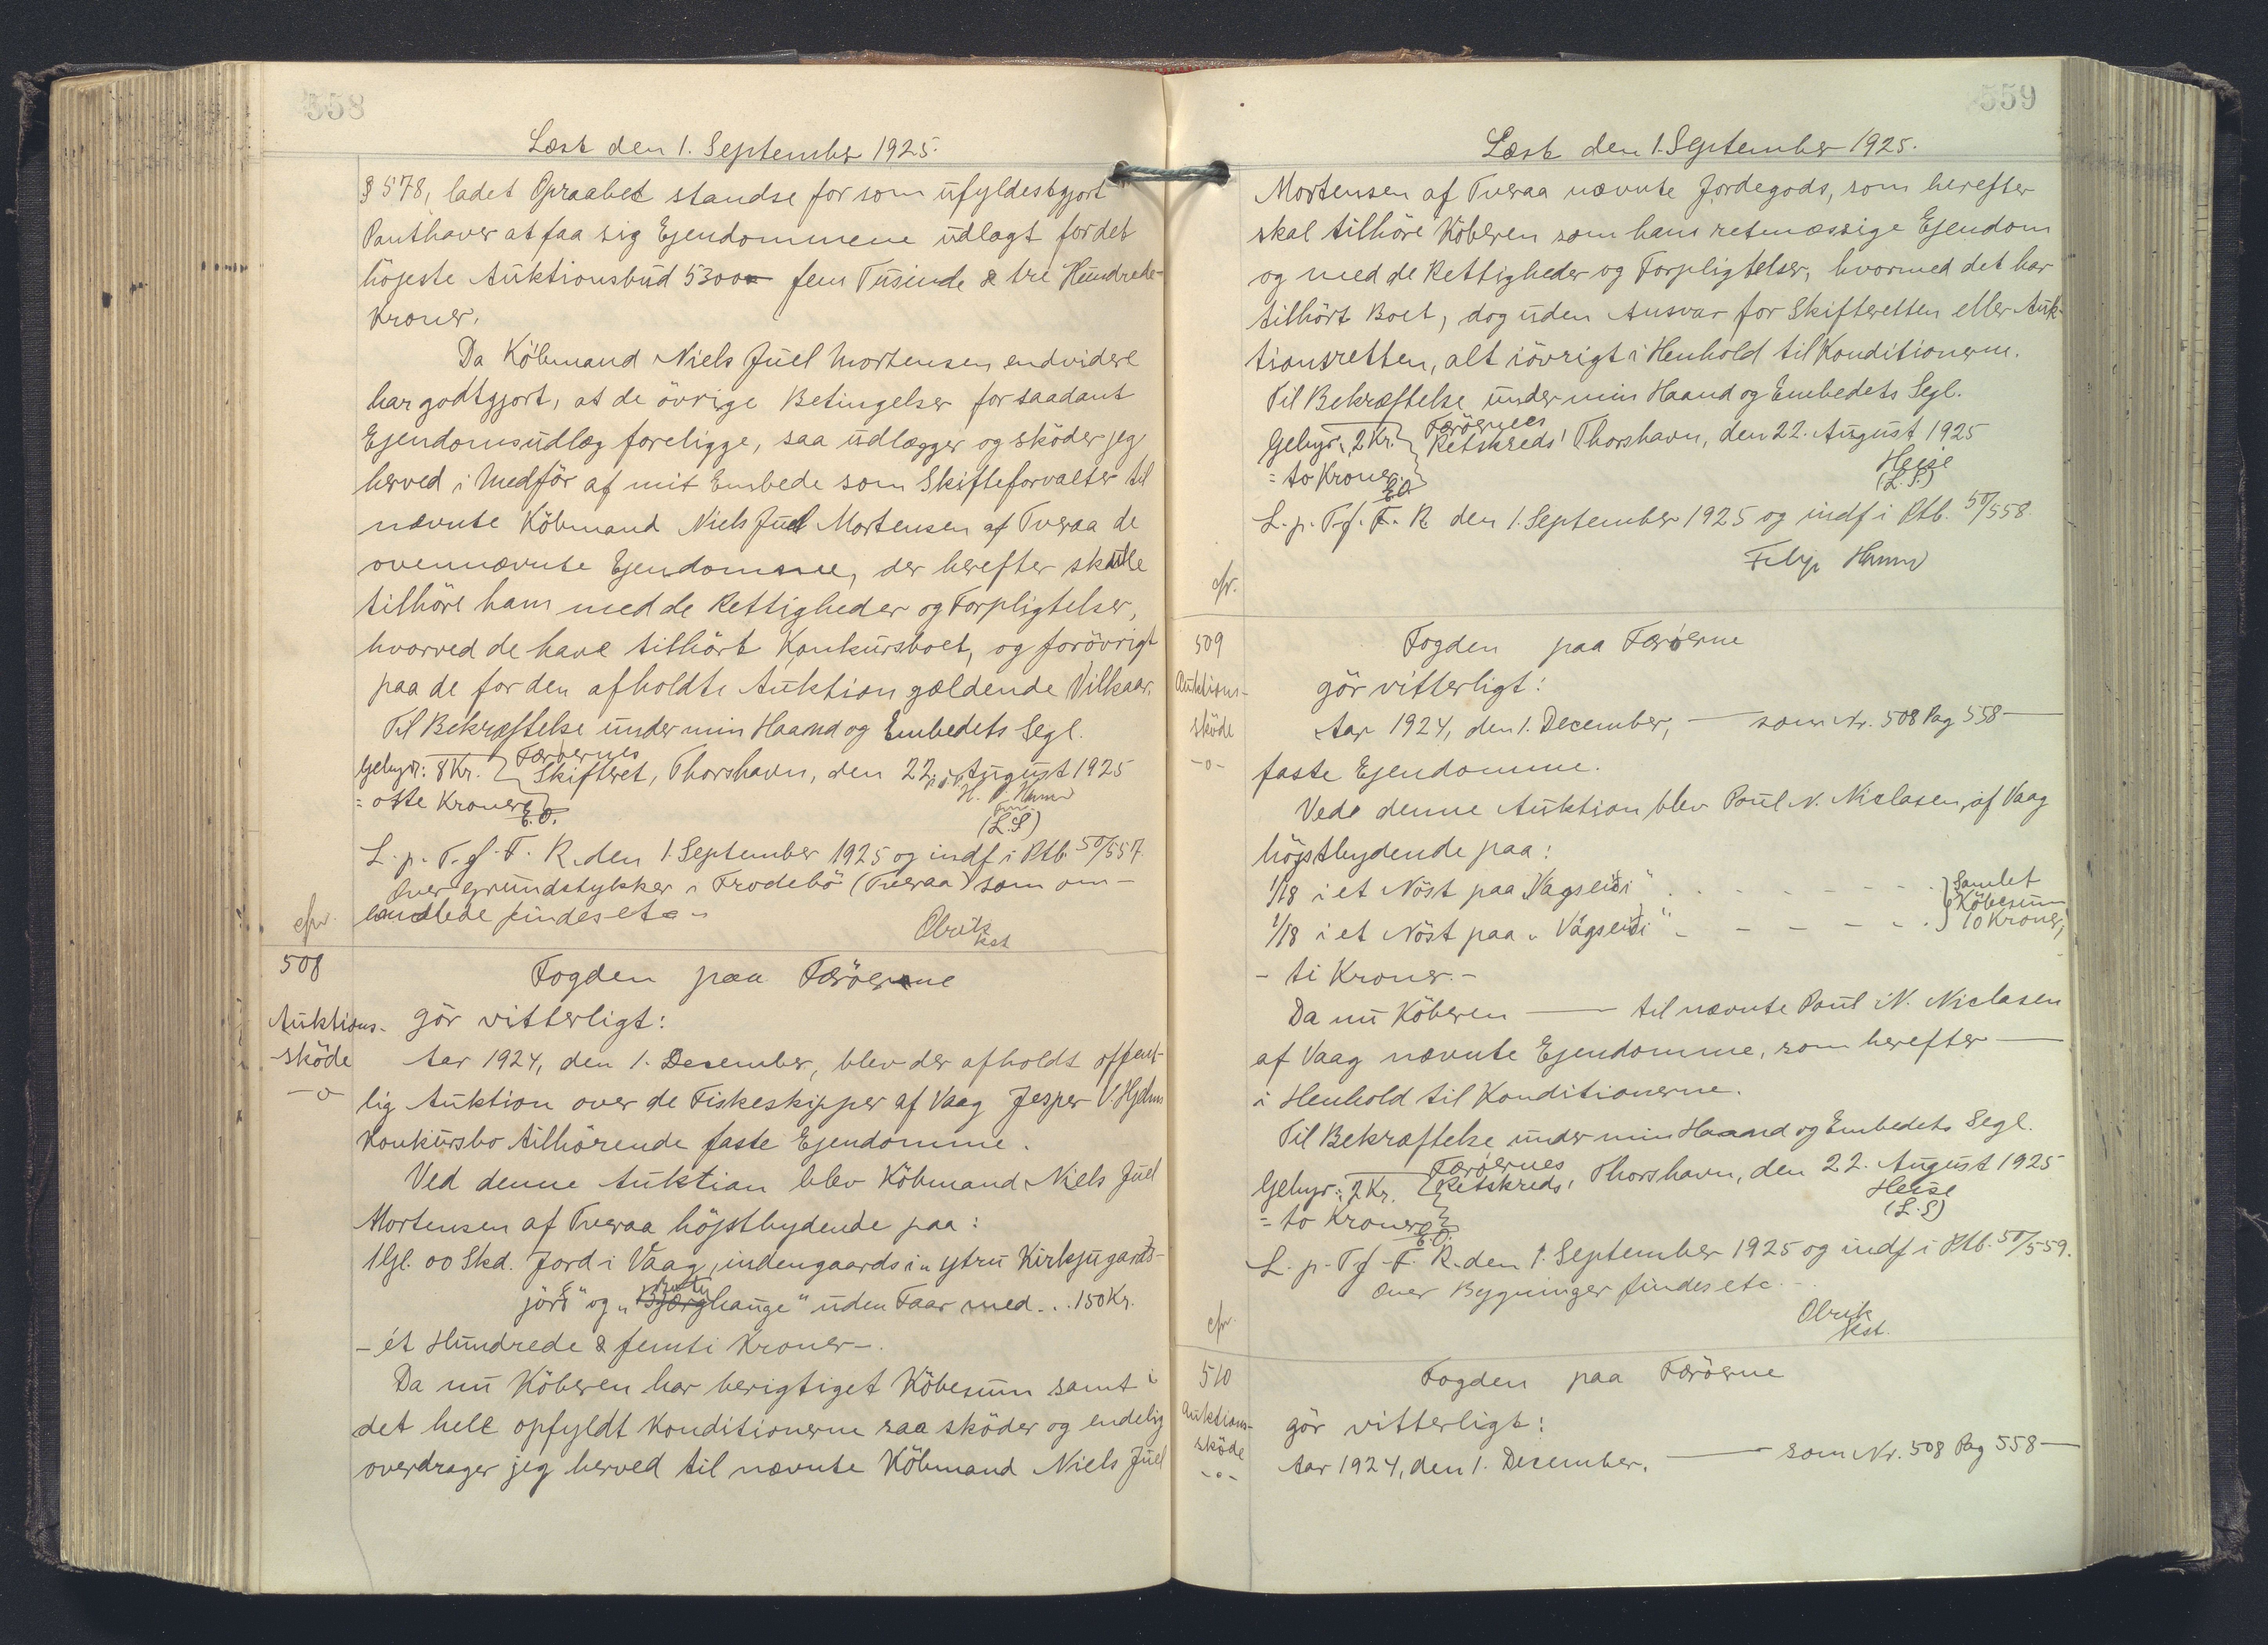 558
Læst den 1. September 1925.
§ 578, ladet Opraabet standse for som ufyldestgjort
Panthaver at faa sig Ejendommene udlagt for det
højeste Auktionsbud 5300 fem Tusinde & tre Hundrede
Kroner.
Da Köbmand Niels Juel Mortensen endvidere
har godtgjort, at de övrige Betingelser for saadant
Ejendomsudlæg foreligge, saa udlægger og sköder jeg
herved i Medför af mit Embede som Skifteforvalter til
nævnte Köbmand Niels Juel Mortensen af Tveraa de
ovennævnte Ejendomme, der herefter skulle
tilhöre ham med de Rettigheder og Forpligtelser,
hvorved de have tilhört Konkursboet, og forövrigt
paa de for den afholdte Auktion gældende Vilkaar.
Til Bekræftelse under min Haand og Embedets Segl.
Gebyr: 8 Kr. Færöernes
Skifteret, Thorshavn, den 22. August 1925
= otte Kroner p.t.
E.O. (L.S)
L. p. T. f. F. R. den 1. September 1925 og indf i Ptb. 50/557.
Over Grundstykker i Frodebö (Tveraa) som om-
cfr. landlede findes etc.
Olrik
kst
508
Fogden paa Færöerne
Auktions-
sköde
-o-
gör vitterligt:
Aar 1924, den 1. December, blev der afholdt offent-
lig Auktion over de Fiskeskipper af Vaag Jesper V. Hjelms
Konkursbo tilhörende faste Ejendomme.
Ved denne Auktion blev Köbmand Niels Juel
Mortensen af Tveraa höjstbydende paa:
1 Gl. 00 Skd. Jord i Vaag, indengaards i "ytru Kirkjugards-
jörð" og "Bjarghauge" uden Faar med... 150 Kr.
- ét Hundrede & femti Kroner -.
Da nu Köberen har berigtiget Köbesum samt i
det hele opfyldt Konditionerne saa sköder og endelig
overdrager jeg herved til nævnte Köbmand Niels Juel
559
Læst den 1. September 1925.
Mortensen af Tveraa nævnte Jordegods, som herefter
skal tilhöre Köberen som hans retmæssige Ejendom
og med de Rettigheder og Forpligtelser, hvormed det har
tilhört Boet, dog uden Ansvar for Skifteretten eller Auk-
tionsretten, alt iövrigt i Henhold til Konditionerne.
Til Bekræftelse under min Haand og Embedets Segl.
Gebyr: 2 Kr. Færöernes
Retskreds, Thorshavn, den 22. August 1925
= to Kroner Heise
E.O. (L.S.)
L. p. T. f. F. R. den 1. September 1925 og indf i Ptb. 50/558.
cfr.
509
Fogden paa Færöerne
Auktions-
sköde
-o-
gör vitterligt:
Aar 1924, den 1. December, — som Nr. 508 Pag 558 —
faste Ejendomme.
Ved denne Auktion blev Poul N. Niclasen, af Vaag
höjstbydende paa:
1/18 i et Nöst paa "Vagseiði" . . . . . . . Samlet
Köbesum
1/18 i et Nöst paa "Vágseiði" - - - - - . 10 Kroner,
- ti Kroner. -
Da nu Köberen — til nævnte Poul N. Niclasen
af Vaag nævnte Ejendomme, som herefter —
i Henhold til Konditionerne.
Til Bekræftelse under min Haand og Embedets Segl.
Gebyr: 2 Kr. Færöernes
Retskreds, Thorshavn, den 22. August 1925
= to Kroner Heise
E.O. (L.S)
L. p. T. f. F. R. den 1. September 1925 og indf i Ptb. 50/559.
Over Bygninger findes etc.
Olrik
kst.
cfr.
510
Fogden paa Færöerne
Auktions-
sköde
-o-
gör vitterligt:
Aar 1924, den 1. December. — som Nr. 508 Pag 558 —